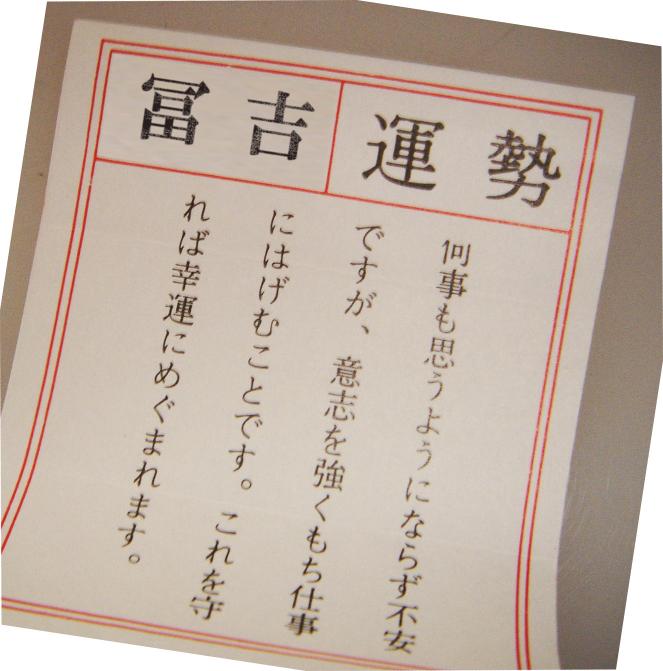 運勢
冨吉
何事も思うようにならず不安
ですが、意志を強くもち仕事
にはげむことです。これを守
れば幸運にめぐまれます。